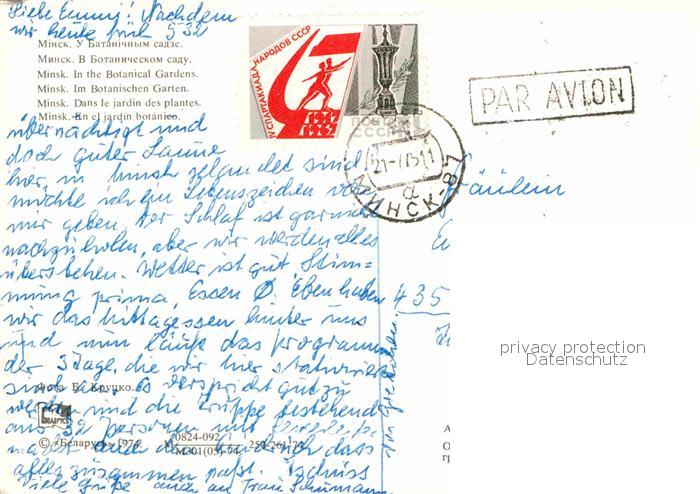 Liebe Emmi! Nachdem
wir heute früh 5 32
Мінск. У Батанічным садзе.
Минск. В Ботаническом саду.
Minsk. In the Botanical Gardens.
Minsk. Im Botanischen Garten.
Minsk. Dans le jardin des plantes.
Minsk. En el jardín botánico.
übernächtigt und
doch guter Laune
hier, in Minsk gelandet sind
möchte ich ein Lebenszeichen von
mir geben. Der Schlaf ist gar nicht
nachzuholen, aber wir werden alles
überstehen. Wetter ist gut Stim=
mung prima, Essen Ø. Eben haben
wir das Mittagessen hinter uns
und nun läuft das Programm
der 3 Tage, die wir hier stationiert
sind an. Es verspricht gut zu
werden und die Gruppe bestehend
aus 32 Personen und
macht auch den Eindruck dass
alles zusammen paßt. Tschüss
Viele Grüße auch an Frau Schumann
Фота Б. Круцко.
БЕЛАРУСЬ
© «Беларусь» 1974. М 0824-092 / М301(05)-74 250-261-74
IV СПАРТАКИАДА НАРОДОВ СССР
1917
1967
ПОЧТА
СССР
PAR AVION
МИНСК-87
а
Fräulein
435
privacy protection
Datenschutz